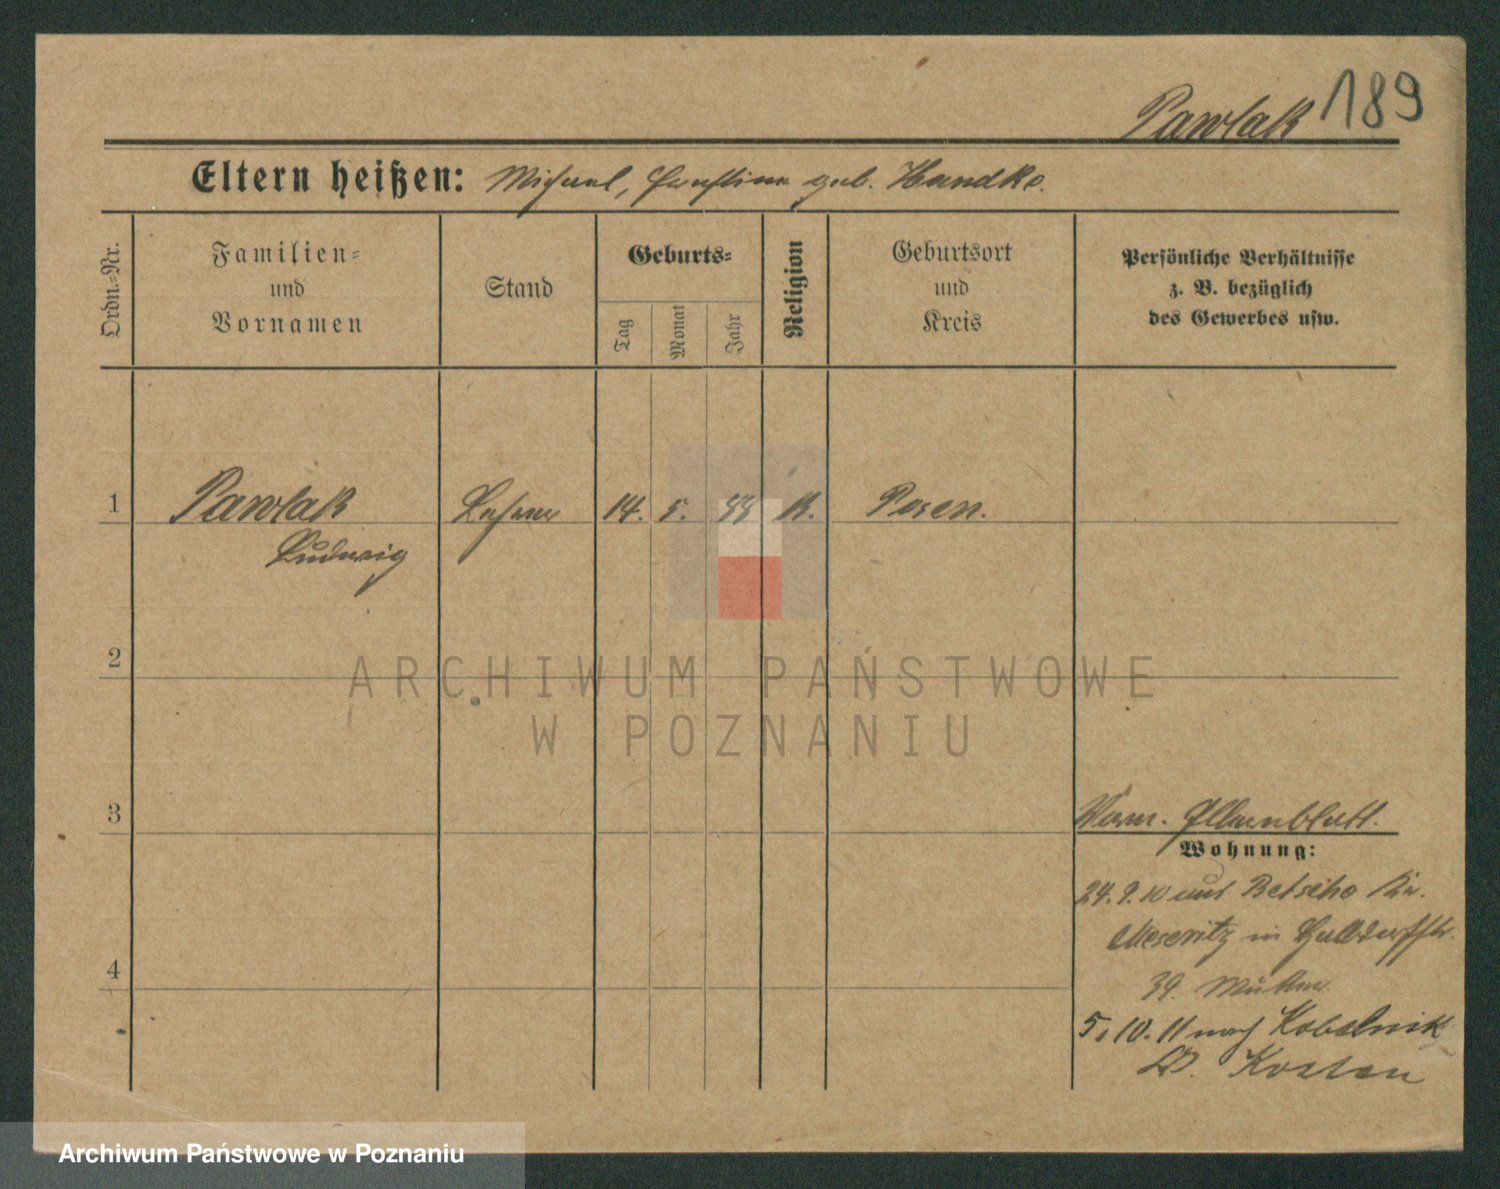 Pawlak 189
Eltern heißen: Michael, geb. Handke.
Ordn.-Nr.
Familien-
und
Vornamen
Stand
Geburts-
Tag
Monat
Jahr
Religion
Geburtsort
und
Kreis
Persönliche Verhältnisse
z. B. bezüglich
des Gewerbes usw.
1 Pawlak Lehrer 14. 5. 88 K. Posen.
Ludwig
2
3
Verm. Elternblatt.
Wohnung:
24. 9. 10 aus Betsche Kr.
Meseritz in
39. Mutter.
4
5. 10. 11 nach Kobelnik
Kosten
ARCHIWUM PAŃSTWOWE
W POZNANIU
Archiwum Państwowe w Poznaniu